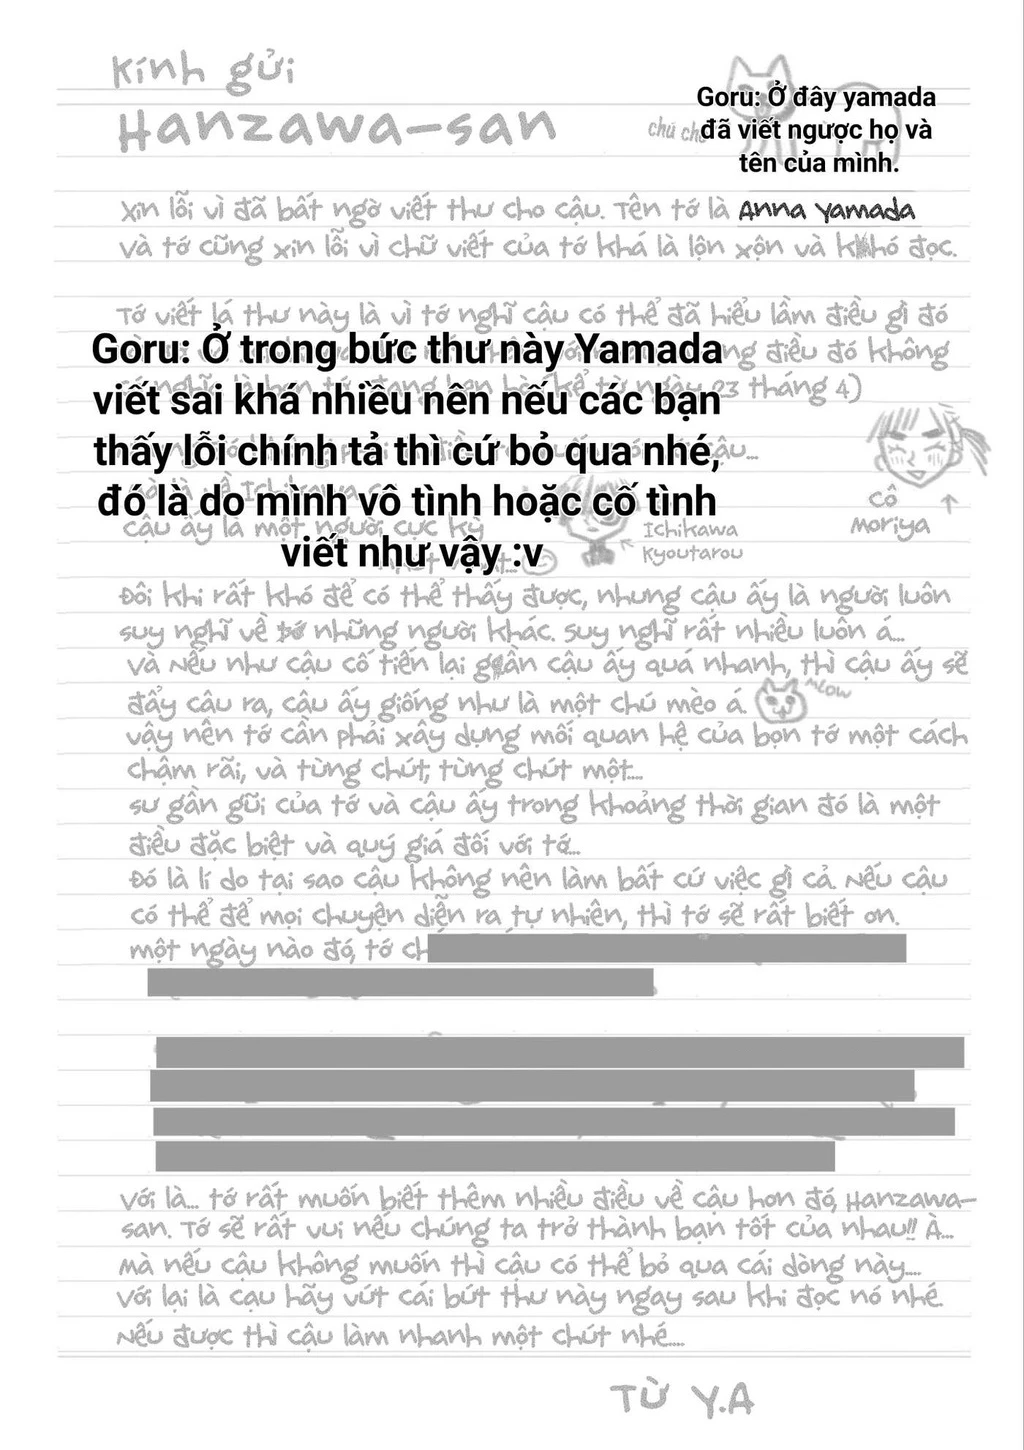 Kính gửi
Hanzawa-san
Goru: Ở đây yamada
đã viết ngược họ và
tên của mình.
chú
Xin lỗi vì đã bất ngờ viết thư cho cậu. Tên tớ là Anna Yamada
và tớ cũng xin lỗi vì chữ viết của tớ khá là lộn xộn và khó đọc.
Tớ viết lá thư này là vì tớ nghĩ cậu có thể đã hiểu lầm điều gì đó
điều đó không
kể từ ngày 23 tháng 4)
Goru: Ở trong bức thư này Yamada
viết sai khá nhiều nên nếu các bạn
thấy lỗi chính tả thì cứ bỏ qua nhé,
đó là do mình vô tình hoặc cố tình
viết như vậy :v
cậu ấy là một người cực kỳ
Ichikawa
Kyoutarou
Cô
Moriya
Đôi khi rất khó để có thể thấy được, nhưng cậu ấy là người luôn
suy nghĩ về những người khác. Suy nghĩ rất nhiều luôn á...
và Nếu như cậu cố tiến lại gần cậu ấy quá nhanh, thì cậu ấy sẽ
đẩy cậu ra, cậu ấy giống như là một chú mèo á.
meow
vậy nên tớ cần phải xây dựng mối quan hệ của bọn tớ một cách
chậm rãi, và từng chút, từng chút một....
sư gần gũi của tớ và cậu ấy trong khoảng thời gian đó là một
điều đặc biệt và quý giá đối với tớ...
Đó là lí do tại sao cậu không nên làm bất cứ việc gì cả. Nếu cậu
có thể để mọi chuyện diễn ra tự nhiên, thì tớ sẽ rất biết ơn.
một ngày nào đó, tớ
Với là... tớ rất muốn biết thêm nhiều điều về cậu hơn đó, Hanzawa-
san. Tớ sẽ rất vui nếu chúng ta trở thành bạn tốt của nhau!! À...
mà nếu cậu không muốn thì cậu có thể bỏ qua cái dòng này....
Với lại là cạu hãy vứt cái bứt thư này ngay sau khi đọc nó nhé.
Nếu được thì cậu làm nhanh một chút nhé....
Từ Y.A